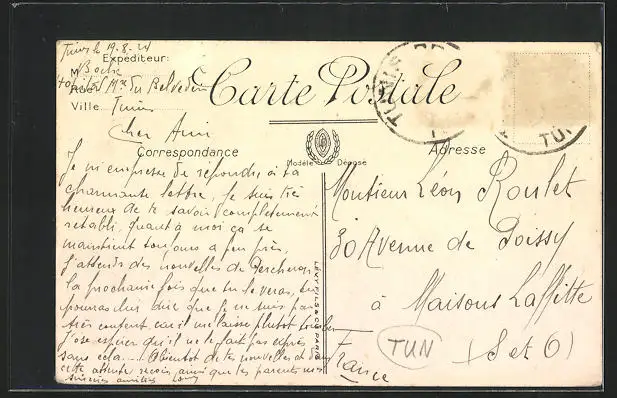 Tunis le 19-8-24
Expéditeur:
M Boche
Rue: Hopital Mre du Belvedere
Ville Tunis
Carte Postale
TUN
Cher Ami
Correspondance
Modèle Déposé
Adresse
Je m'empresse de repondre à ta
charmante lettre, je suis très
heureux de te savoir completement
retabli, quant à moi ça se
maintient toujours a peu près,
J'attends des nouvelles de
la prochaine fois que tu le veras, tu
pourras lui dire que je ne suis pas
très content, car il me laisse plutot tomber
J'ose esperer qu'il ne le fait pas exprès
sans cela... A bientot de tes nouvelles et dans
cette attente reçois, ainsi que tes parents mes
sinceres amitiés
LEVY FILS & Cie PARIS
Monsieur Léon Roulet
30 Avenue de Poissy
à Maisons Laffitte
(S et O)
France
TUN